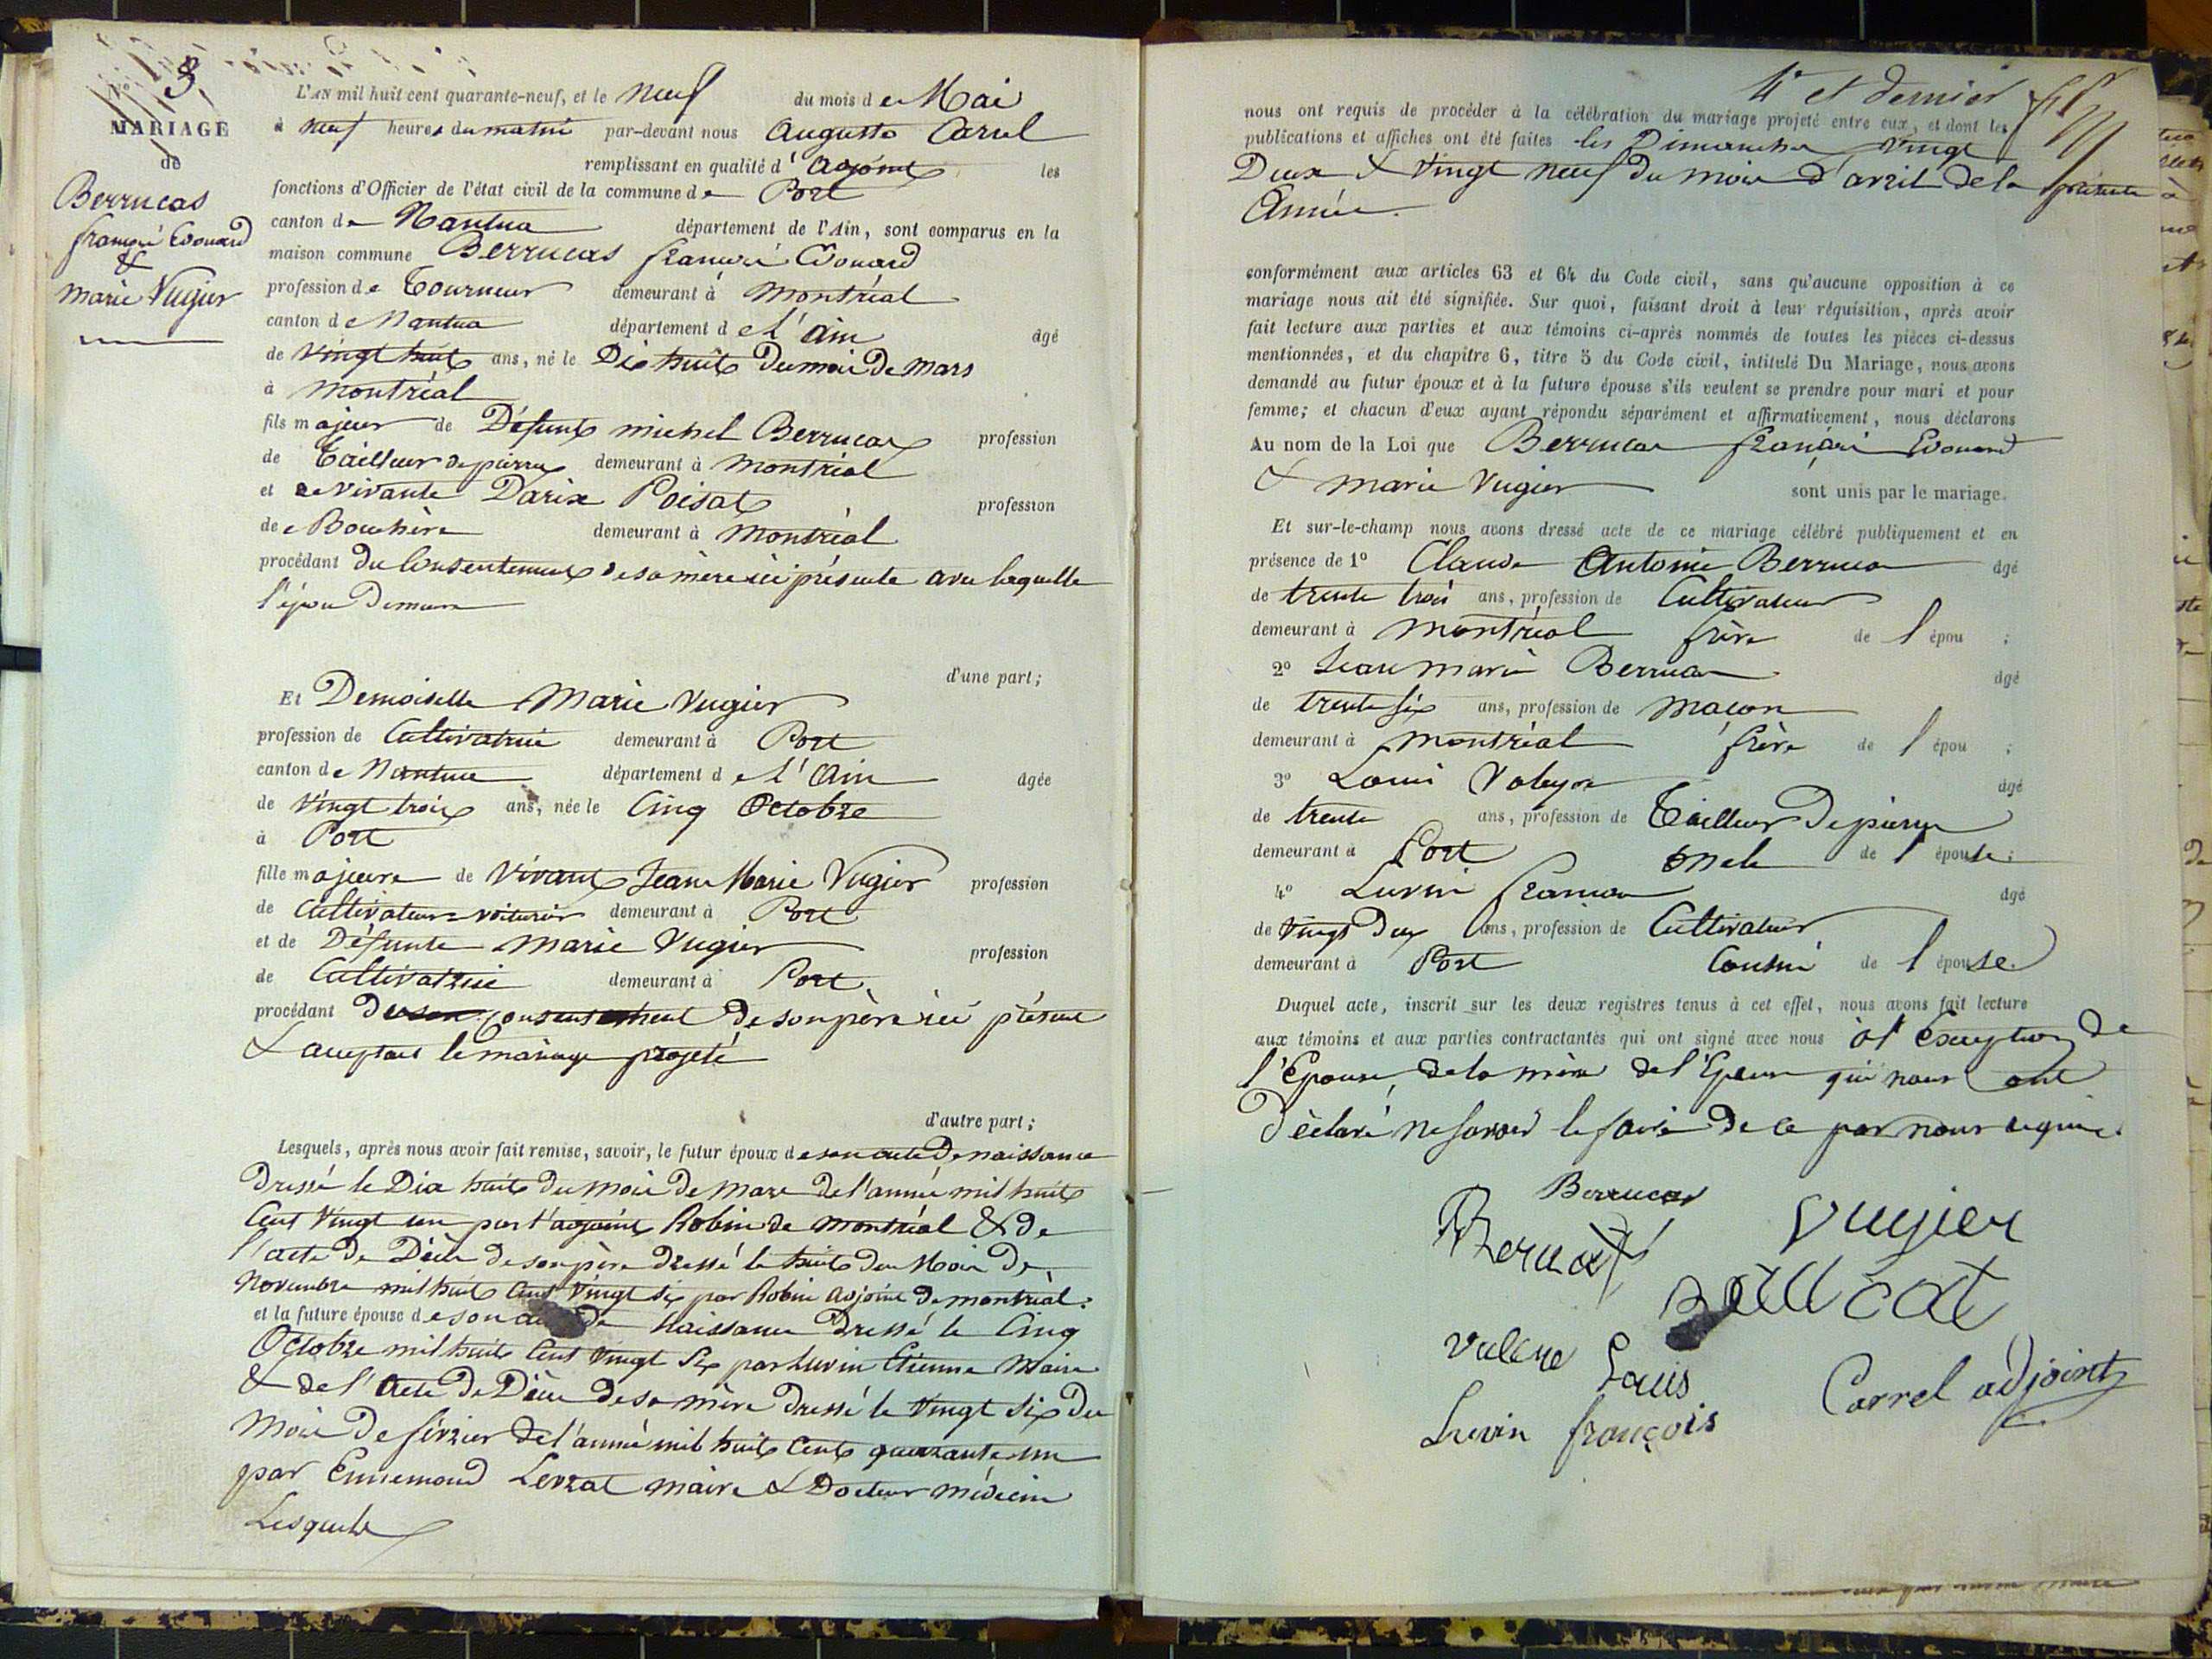 3.
MARIAGE
de
Berrucas
françois Edouard
&
Marie Vugier
L'AN mil huit cent quarante-neuf, et le neuf du mois de Mai
à neuf heures du matin par-devant nous Auguste Carrel
remplissant en qualité d'adjoint les
fonctions d'Officier de l'état civil de la commune de Port
canton de Nantua département de l'Ain, sont comparus en la
maison commune Berrucas françois Edouard
profession de Tourneur demeurant à Montréal
canton de Nantua département de l'ain âgé
de vingt huit ans, né le Dix huit du mois de mars
à Montréal
fils majeur de Défunt michel Berrucas profession
de Tailleur de pierre demeurant à Montréal
et de vivante Darise Poisat profession
de Bouchère demeurant à Montréal
procédant du Consentement de sa mère ici présente avec laquelle
l'époux Demeure
d'une part;
Et Demoiselle Marie Vugier
profession de Cultivatrice demeurant à Port
canton de Nantua département de l'Ain âgée
de vingt trois ans, née le Cinq Octobre
à Port
fille majeure de Vivant Jean Marie Vugier profession
de Cultivateur=voiturier demeurant à Port
et de Défunte Marie Vugier profession
de Cultivatrice demeurant à Port.
procédant du consentement de son père ici présent
& acceptant le mariage projeté
d'autre part;
Lesquels, après nous avoir fait remise, savoir, le futur époux de son acte De naissance
Dressé le Dix huit du Mois De Mars de l'année mil huit
Cent Vingt un par l'adjoint Robin de Montréal & de
l'acte de Décès de son père Dressé le huit du Mois De
Novembre mil huit Cent Vingt six par Robin adjoint De montréal.
et la future épouse de son acte De Naissance Dressé le Cinq
Octobre mil huit Cent Vingt Six par Luvin Etienne Maire
& de l'Acte De Décès de sa mère Dressé le Vingt six du
Mois De février de l'année mil huit Cent quarante un
par Ennemond Levrat maire & Docteur médecin
Lesquels
4e et dernier
nous ont requis de procéder à la célébration du mariage projeté entre eux, et dont les
publications et affiches ont été faites les Dimanches Vingt
Deux & Vingt neuf du mois d'avril de la présente
Année.
conformément aux articles 63 et 64 du Code civil, sans qu'aucune opposition à ce
mariage nous ait été signifiée. Sur quoi, faisant droit à leur réquisition, après avoir
fait lecture aux parties et aux témoins ci-après nommés de toutes les pièces ci-dessus
mentionnées, et du chapitre 6, titre 5 du Code civil, intitulé Du Mariage, nous avons
demandé au futur époux et à la future épouse s'ils veulent se prendre pour mari et pour
femme; et chacun d'eux ayant répondu séparément et affirmativement, nous déclarons
Au nom de la Loi que Berrucas françois Edouard
& marie Vugier sont unis par le mariage.
Et sur-le-champ nous avons dressé acte de ce mariage célébré publiquement et en
présence de 1° Claude Antoine Berrucas âgé
de trente trois ans, profession de Cultivateur
demeurant à Montréal frère de l'épou ;
2° Jean marie Berrucas âgé
de trente six ans, profession de maçon
demeurant à montréal frère de l'épou ;
3° Louis âgé
de trente ans, profession de Tailleur De pierre
demeurant à Port oncle de l'épouse;
4° Luvin François âgé
de Vingt Deux ans, profession de Cultivateur
demeurant à Port Cousin de l'épouse.
Duquel acte, inscrit sur les deux registres tenus à cet effet, nous avons fait lecture
aux témoins et aux parties contractantes qui ont signé avec nous à l'exception de
l'Epouse, de la mère de l'Epoux qui nous ont
Déclaré ne savoir le faire de ce par nous requis.
Berrucas
Vugier
Louis
Luvin françois
Carrel adjoint